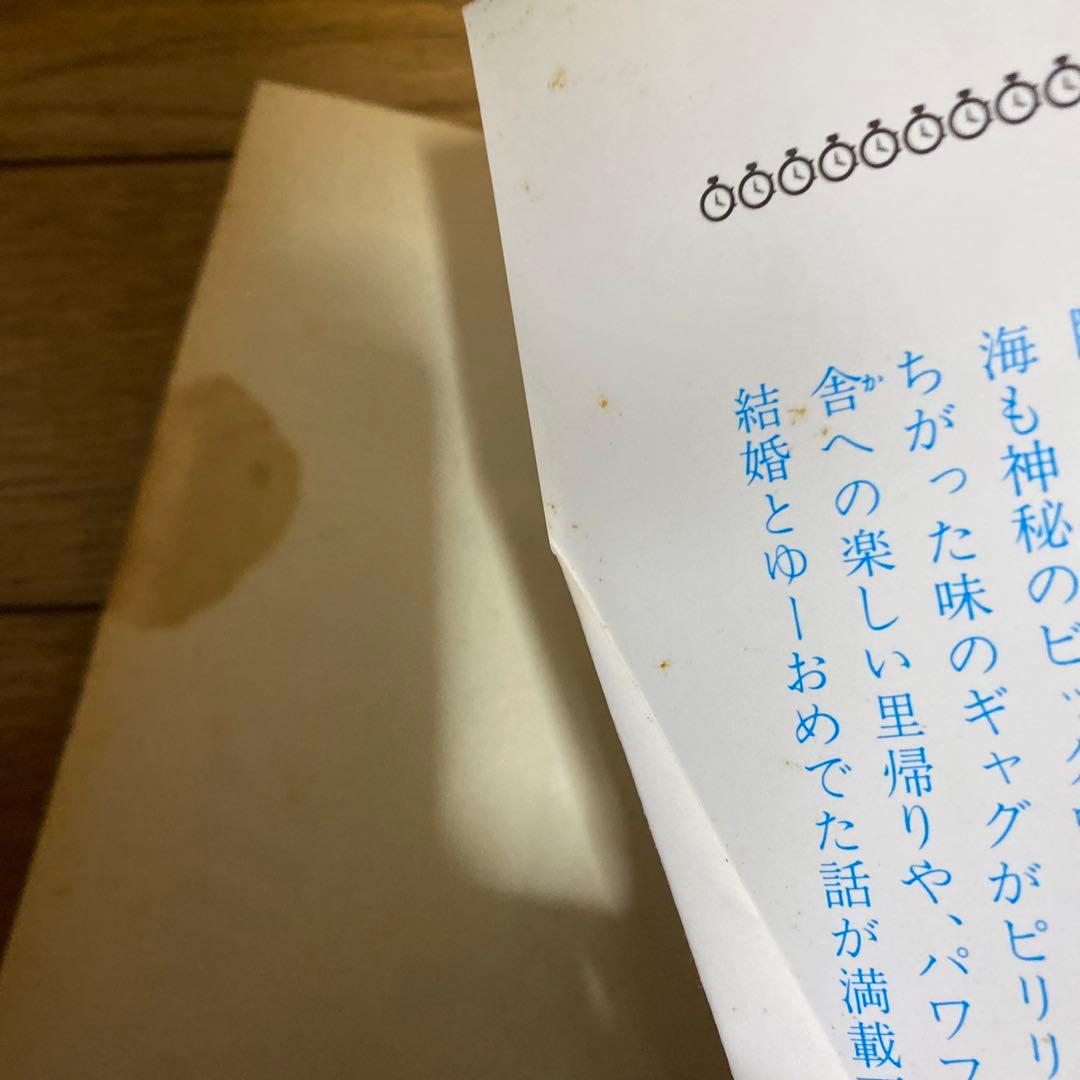 海も神秘のビックリ
ちがった味のギャグがピリリ
舎への楽しい里帰りや、パワフ
結婚とゆーおめでた話が満載